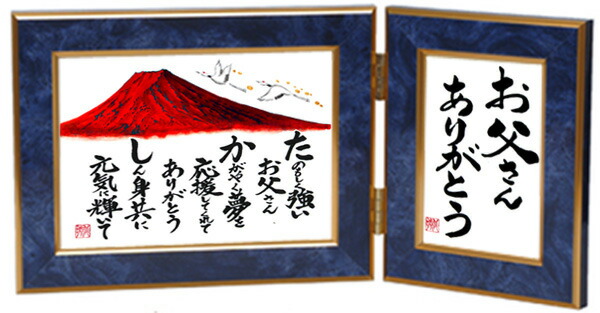 たのもしく強い
お父さん
かがやく夢を
応援してくれて
ありがとう
しん身共に
元気に輝いて
お父さん
ありがとう